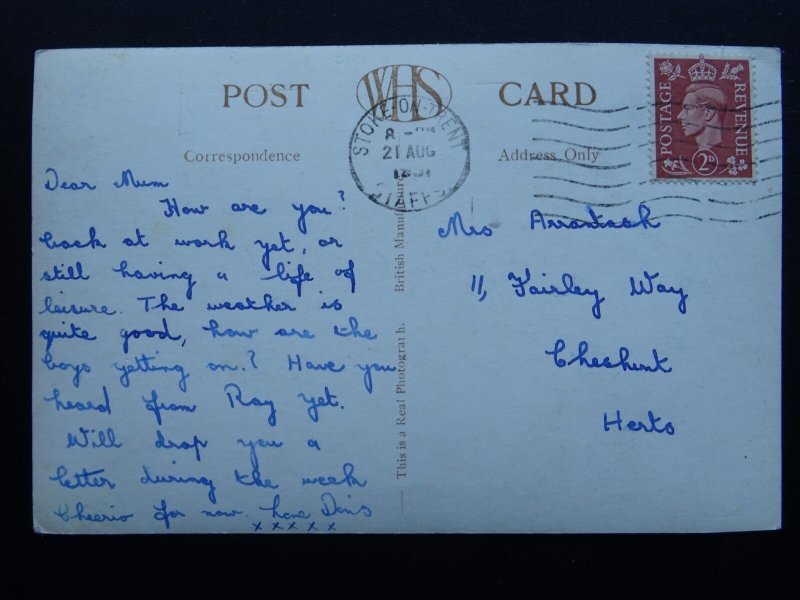 POST WHS CARD
Correspondence
Address Only
STOKE-ON-TRENT
21 AUG
1951
STAFFS
POSTAGE REVENUE
2D
Dear Mum
How are you?
back at work yet, or
still having a life of
leisure. The weather is
quite good, how are the
boys getting on.? Have you
heard from Ray yet.
Will drop you a
letter during the week
Cheerio for now. Love Doris
x x x x x
This is a Real Photograph. British Manufacture
Mrs
11, Fairley Way
Cheshunt
Herts